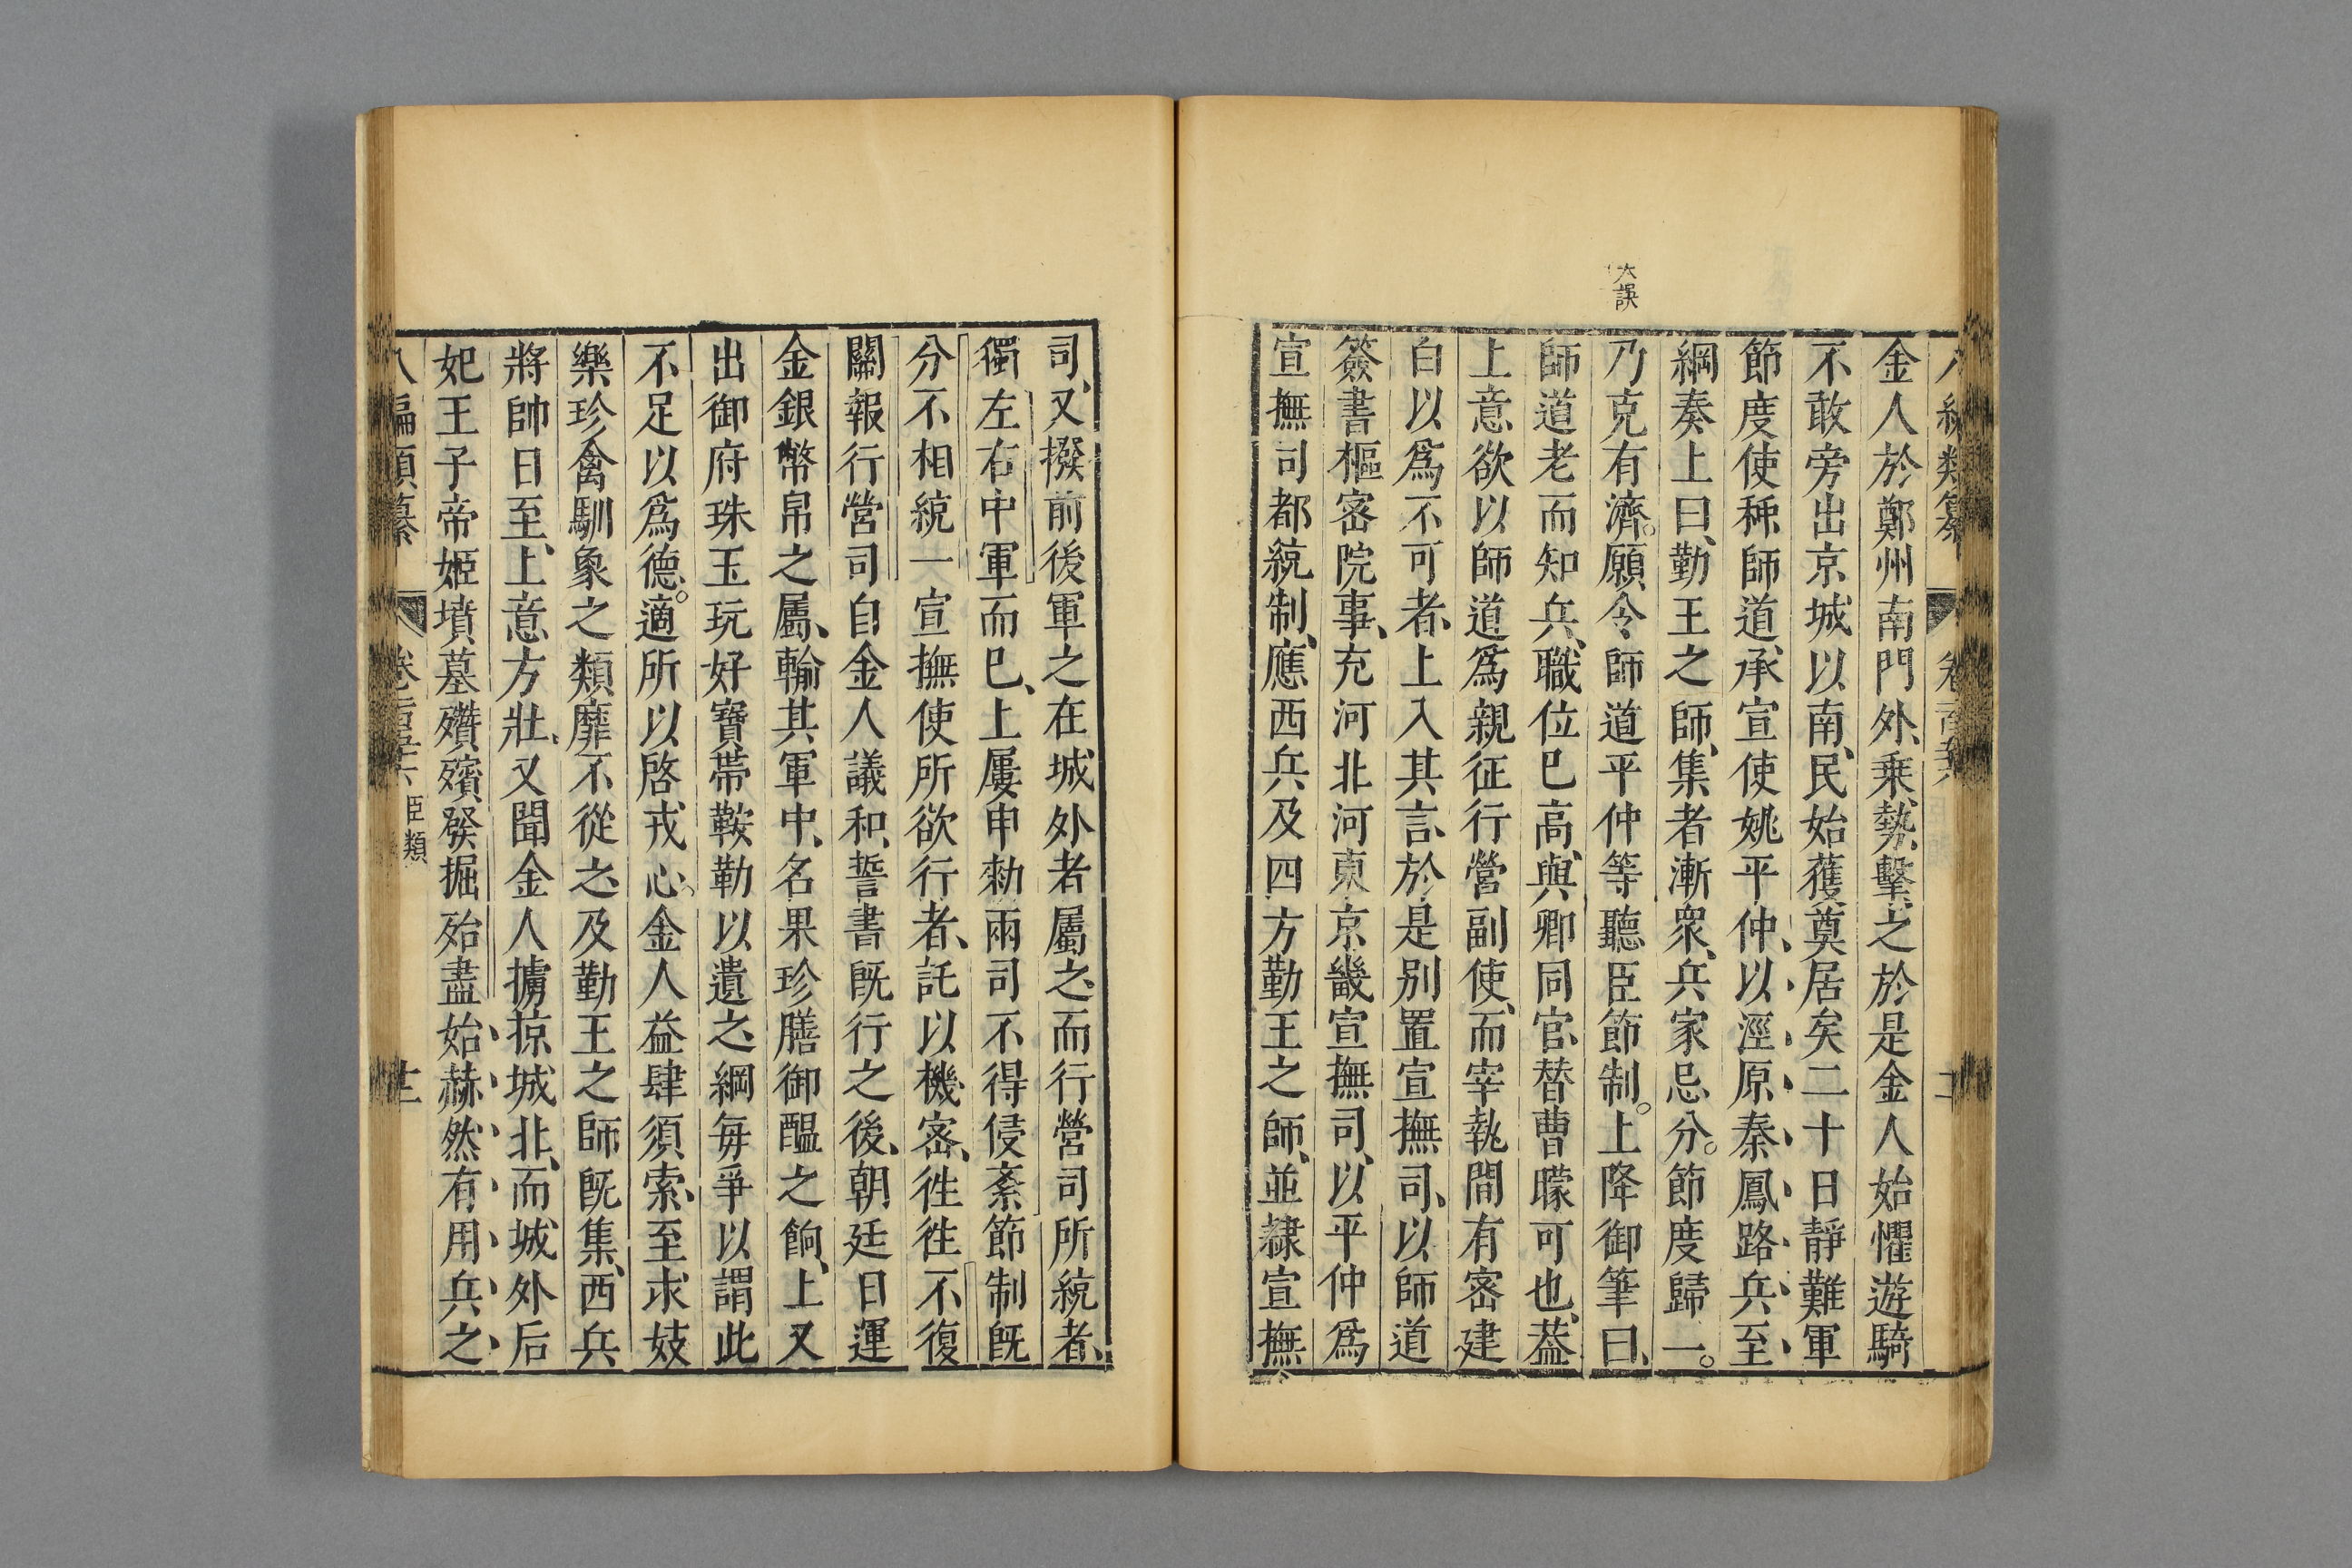 大誤
金人於鄭州南門外、乗勢擊之於是金人始懼遊騎
不敢旁出京城以南、民始獲奠居矣二十日靜難軍
節度使种師道、承宣使姚平仲、以涇原秦鳳路兵至、
綱奏上曰、勤王之師、集者漸衆、兵家忌分。節度歸一。
乃克有濟。願令師道平仲等聽臣節制。上降御筆曰、
師道老而知兵、職位已高、與卿同官、替曹曚可也、葢
上意欲以師道爲親征行營副使、而宰執間有宻建
白以爲不可者、上入其言、於是别置宣撫司、以師道
簽書樞宻院事、充河北河東京畿宣撫司、以平仲爲
宣撫司都統制、應西兵及四方勤王之師、並隷宣撫
司、又撥前後軍之在城外者屬之、而行營司所統者、
獨左右中軍而已、上屢申勑兩司不得侵紊節制旣
分不相統一宣撫使所欲行者、託以機宻、徃徃不復
關報行營司自金人議和、誓書旣行之後、朝廷日運
金銀幣帛之屬、輸其軍中、名果珍膳御醖之餉、上又
出御府珠玉玩好寶帶鞍勒以遺之、綱每爭以謂此
不足以爲德。適所以啓戎心、金人益肆須索、至求妓
樂珍禽馴象之類靡不從之、及勤王之師旣集、西兵
將帥日至、上意方壯、又聞金人擄掠城北、而城外后
妃王子帝姬墳墓殯殯發掘殆盡始、赫然有用兵之
八編類纂 臣類